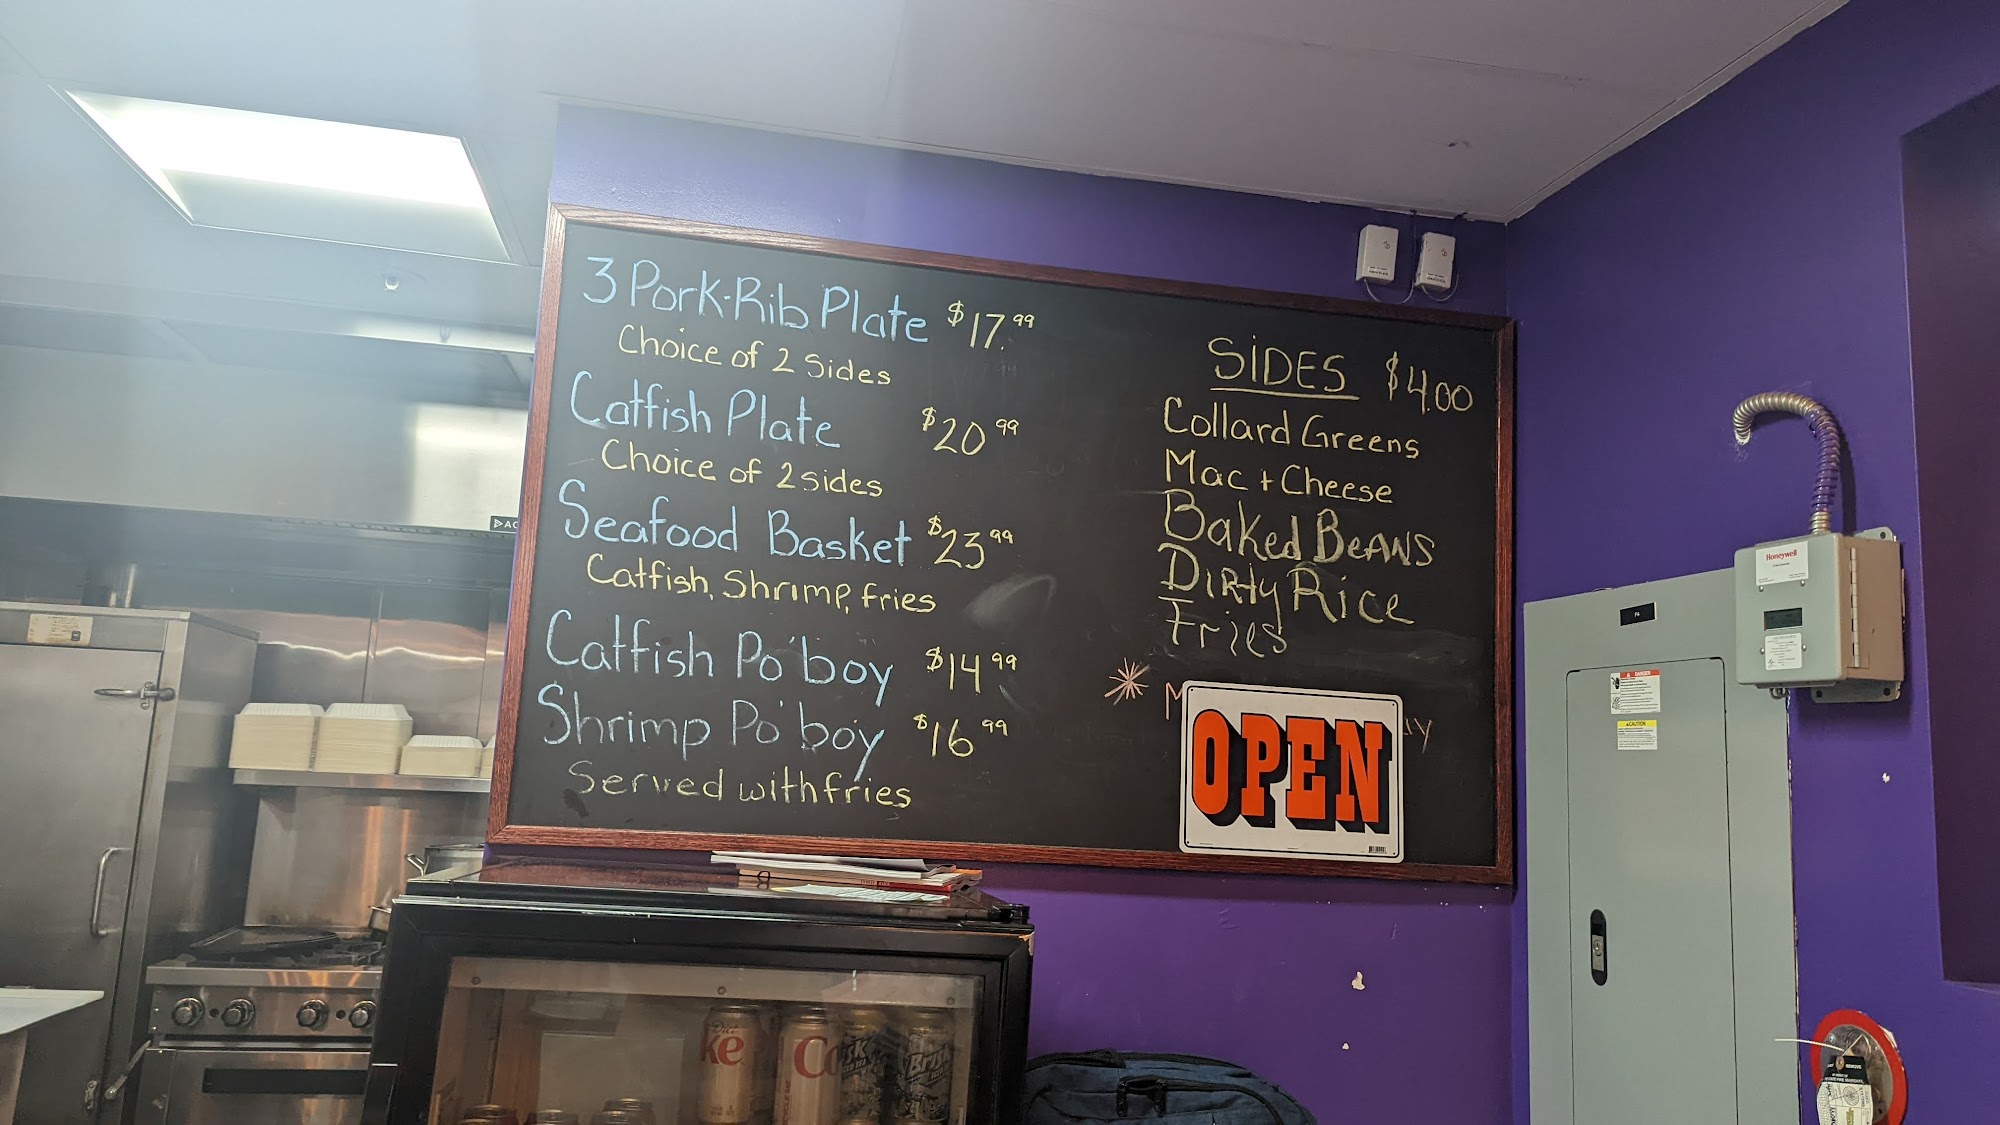 3 Pork-Rib Plate $17.99
Choice of 2 Sides
Catfish Plate $20.99
Choice of 2 sides
Seafood Basket $23.99
Catfish, Shrimp, fries
Catfish Po'boy $14.99
Shrimp Po'boy $16.99
Served with fries
SIDES $4.00
Collard Greens
Mac + Cheese
Baked BeANS
DIRty RicE
Fries
OPEN
Honeywell
DANGER
CAUTION
Diet
ke
Co
Brisk